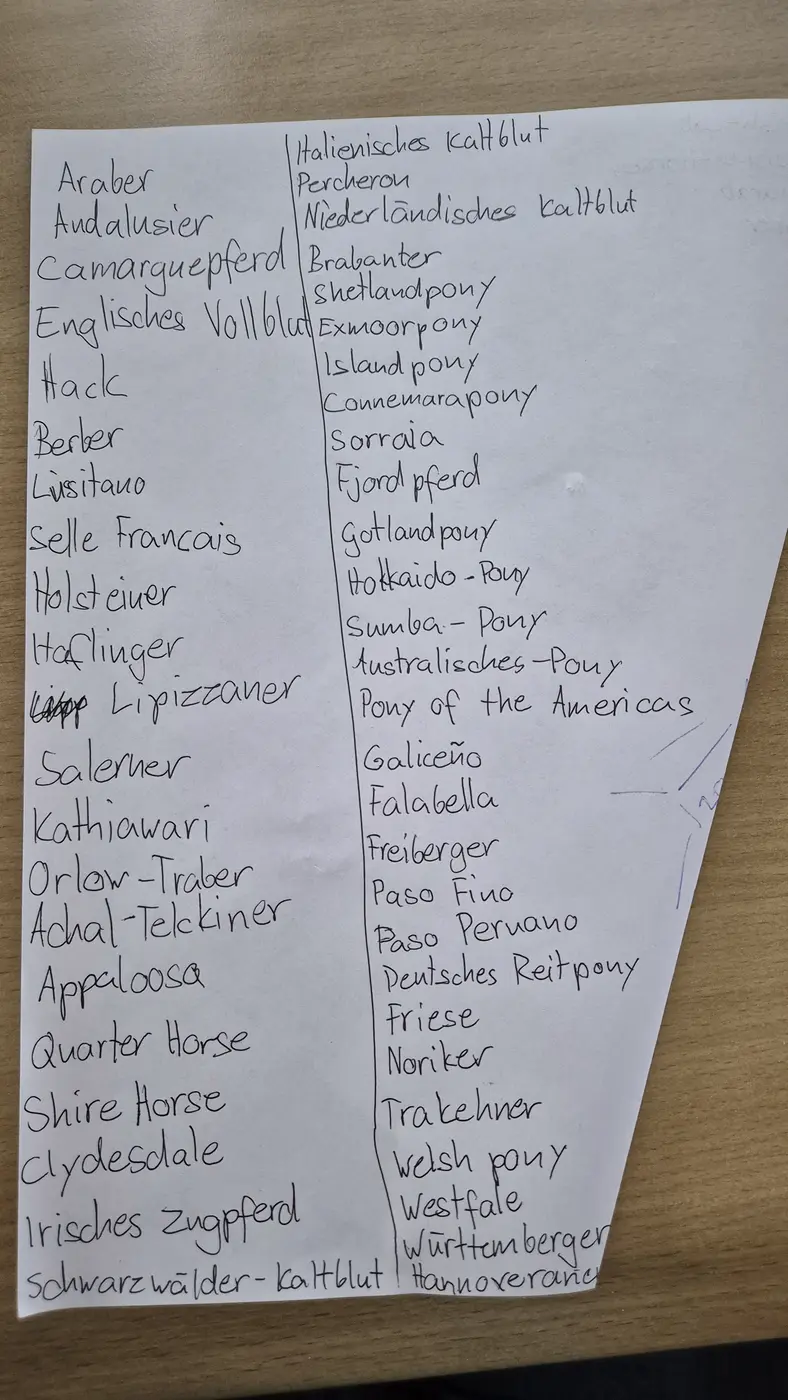 Araber
Andalusier
Camarguepferd
Englisches Vollblut
Hack
Berber
Lusitano
Selle Francais
Holsteiner
Haflinger
Lipizzaner
Salerner
Kathiawari
Orlow-Traber
Achal-Tekkiner
Appaloosa
Quarter Horse
Shire Horse
Clydesdale
Irisches Zugpferd
Schwarzwälder-Kaltblut
Italienisches Kaltblut
Percheron
Niederländisches Kaltblut
Brabanter
Shetlandpony
Exmoorpony
Islandpony
Connemarapony
Sorraia
Fjordpferd
Gotlandpony
Hokkaido-Pony
Sumba-Pony
Australisches-Pony
Pony of the Americas
Galiceño
Falabella
Freiberger
Paso Fino
Paso Peruano
Deutsches Reitpony
Friese
Noriker
Trakehner
Welsh pony
Westfale
Württemberger
Hannoveraner